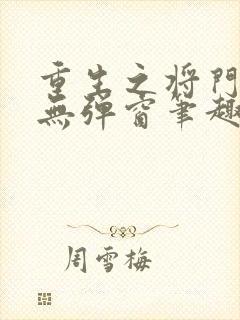 重生之将門
無弹窗筆趣
周雪梅